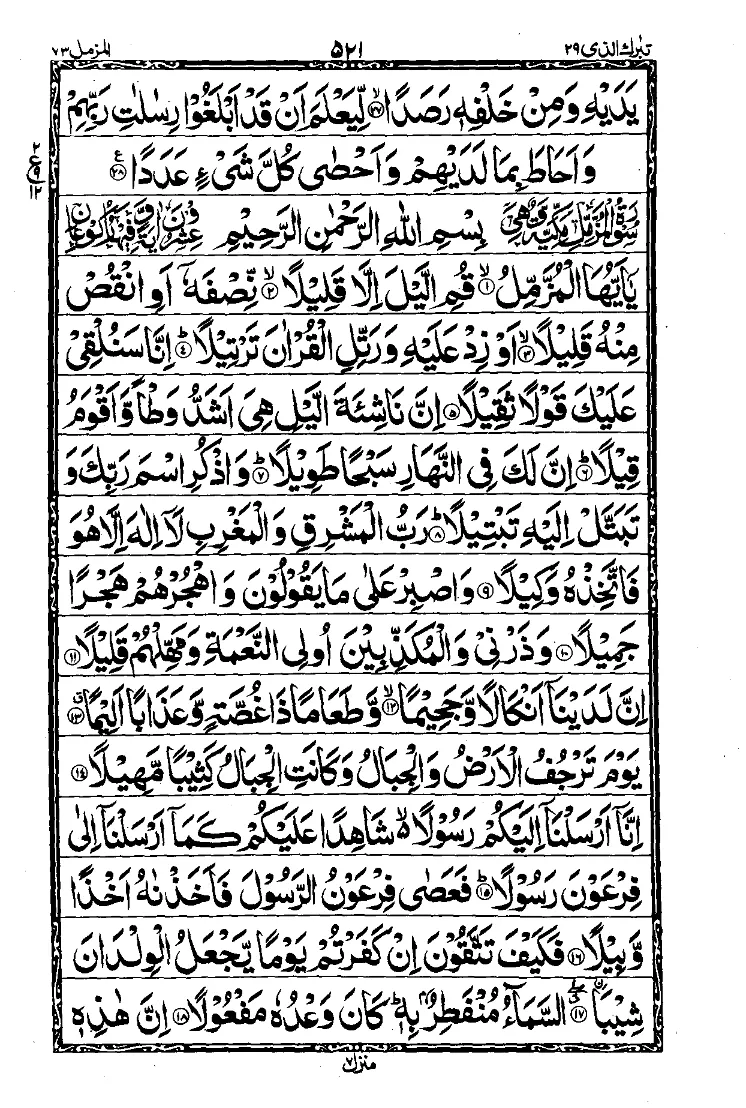 تبٰرك الذی ۲۹
۵۲۱
المزمل ۷۳
یَدَیْهِ وَمِنْ خَلْفِهٖ رَصَدًا ۙ﴿۲۷﴾ لِّیَعْلَمَ اَنْ قَدْ اَبْلَغُوْا رِسٰلٰتِ رَبِّهِمْ
وَاَحَاطَ بِمَا لَدَیْهِمْ وَاَحْصٰی كُلَّ شَیْءٍ عَدَدًا ﴿۲۸﴾ع
۲
ع
۹
۱۲
سُوْرَةُ الْمُزَّمِّلِ مَكِّیَّةٌ وَّهِیَ بِسْمِ اللهِ الرَّحْمٰنِ الرَّحِیْمِ عِشْرُوْنَ اٰیَةً وَّفِیْهَا رُكُوْعَانِ
یٰۤاَیُّهَا الْمُزَّمِّلُ ۙ﴿۱﴾ قُمِ الَّیْلَ اِلَّا قَلِیْلًا ۙ﴿۲﴾ نِّصْفَهٗۤ اَوِ انْقُصْ
مِنْهُ قَلِیْلًا ۙ﴿۳﴾ اَوْ زِدْ عَلَیْهِ وَرَتِّلِ الْقُرْاٰنَ تَرْتِیْلًا ؕ﴿۴﴾ اِنَّا سَنُلْقِیْ
عَلَیْكَ قَوْلًا ثَقِیْلًا ﴿۵﴾ اِنَّ نَاشِئَةَ الَّیْلِ هِیَ اَشَدُّ وَطْاً وَّاَقْوَمُ
قِیْلًا ؕ﴿۶﴾ اِنَّ لَكَ فِی النَّهَارِ سَبْحًا طَوِیْلًا ؕ﴿۷﴾ وَاذْكُرِ اسْمَ رَبِّكَ وَ
تَبَتَّلْ اِلَیْهِ تَبْتِیْلًا ؕ﴿۸﴾ رَبُّ الْمَشْرِقِ وَالْمَغْرِبِ لَاۤ اِلٰهَ اِلَّا هُوَ
فَاتَّخِذْهُ وَكِیْلًا ﴿۹﴾ وَاصْبِرْ عَلٰی مَا یَقُوْلُوْنَ وَاهْجُرْهُمْ هَجْرًا
جَمِیْلًا ﴿۱۰﴾ وَذَرْنِیْ وَالْمُكَذِّبِیْنَ اُولِی النَّعْمَةِ وَمَهِّلْهُمْ قَلِیْلًا ﴿۱۱﴾
اِنَّ لَدَیْنَاۤ اَنْكَالًا وَّجَحِیْمًا ۙ﴿۱۲﴾ وَّطَعَامًا ذَا غُصَّةٍ وَّعَذَابًا اَلِیْمًا ۗ﴿۱۳﴾
یَوْمَ تَرْجُفُ الْاَرْضُ وَالْجِبَالُ وَكَانَتِ الْجِبَالُ كَثِیْبًا مَّهِیْلًا ﴿۱۴﴾
اِنَّاۤ اَرْسَلْنَاۤ اِلَیْكُمْ رَسُوْلًا ۙ۬ شَاهِدًا عَلَیْكُمْ كَمَاۤ اَرْسَلْنَاۤ اِلٰی
فِرْعَوْنَ رَسُوْلًا ؕ﴿۱۵﴾ فَعَصٰی فِرْعَوْنُ الرَّسُوْلَ فَاَخَذْنٰهُ اَخْذًا
وَّبِیْلًا ﴿۱۶﴾ فَكَیْفَ تَتَّقُوْنَ اِنْ كَفَرْتُمْ یَوْمًا یَّجْعَلُ الْوِلْدَانَ
شِیْبَا ﴿۱۷﴾ السَّمَآءُ مُنْفَطِرٌۢ بِهٖ ؕ كَانَ وَعْدُهٗ مَفْعُوْلًا ﴿۱۸﴾ اِنَّ هٰذِهٖ
منزل ۷